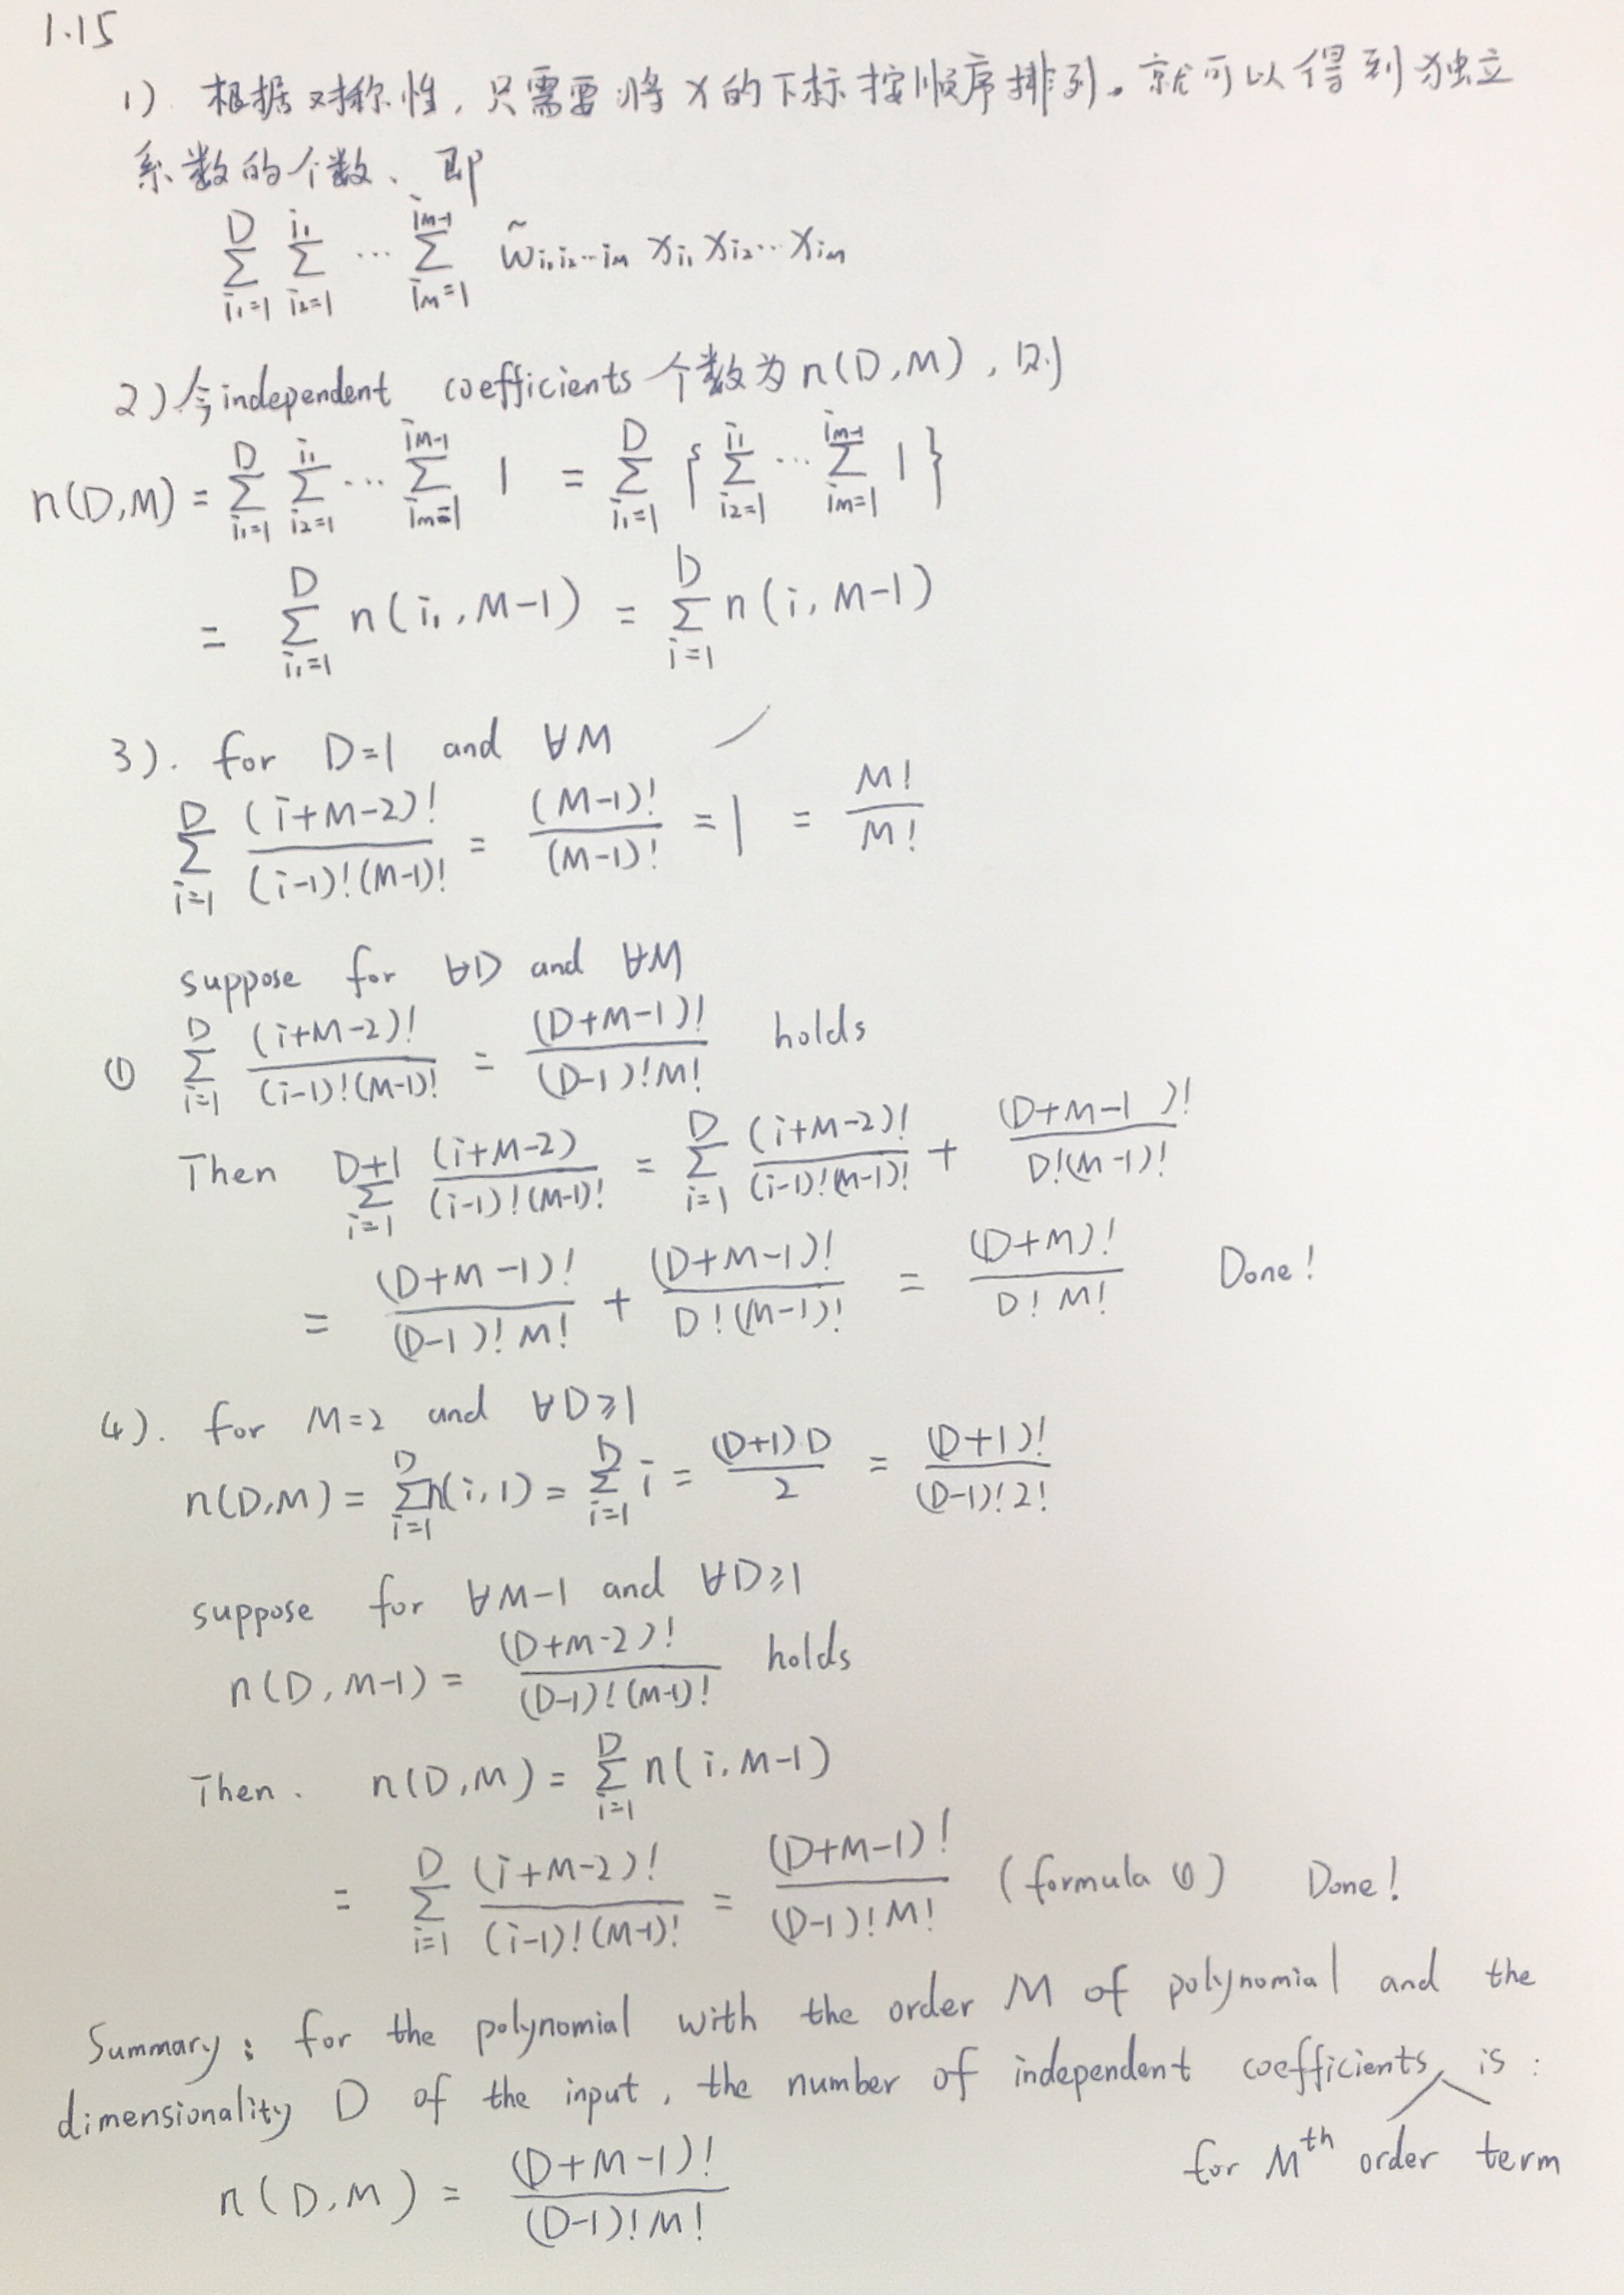 1.15
1). 根据对称性, 只需要将 x 的下标按顺序排列。就可以得到独立
系数的个数、即
$\sum_{i_1=1}^{D} \sum_{i_2=1}^{i_1} \cdots \sum_{i_M=1}^{i_{M-1}} \tilde{w}_{i_1 i_2 \cdots i_M} x_{i_1} x_{i_2} \cdots x_{i_M}$
2) 令 independent coefficients 个数为 n(D,M), 则
$n(D,M) = \sum_{i_1=1}^{D} \sum_{i_2=1}^{i_1} \cdots \sum_{i_M=1}^{i_{M-1}} 1 = \sum_{i_1=1}^{D} \{ \sum_{i_2=1}^{i_1} \cdots \sum_{i_M=1}^{i_{M-1}} 1 \}$
$= \sum_{i_1=1}^{D} n(i_1, M-1) = \sum_{i=1}^{D} n(i, M-1)$
3). for D=1 and ∀M
$\sum_{i=1}^{D} \frac{(i+M-2)!}{(i-1)!(M-1)!} = \frac{(M-1)!}{(M-1)!} = 1 = \frac{M!}{M!}$
suppose for ∀D and ∀M
① $\sum_{i=1}^{D} \frac{(i+M-2)!}{(i-1)!(M-1)!} = \frac{(D+M-1)!}{(D-1)!M!}$ holds
Then $\sum_{i=1}^{D+1} \frac{(i+M-2)}{(i-1)!(M-1)!} = \sum_{i=1}^{D} \frac{(i+M-2)!}{(i-1)!(M-1)!} + \frac{(D+M-1)!}{D!(M-1)!}$
$= \frac{(D+M-1)!}{(D-1)!M!} + \frac{(D+M-1)!}{D!(M-1)!} = \frac{(D+M)!}{D!M!}$ Done!
4). for M=2 and ∀D≥1
$n(D,M) = \sum_{i=1}^{D} n(i,1) = \sum_{i=1}^{D} i = \frac{(D+1)D}{2} = \frac{(D+1)!}{(D-1)!2!}$
suppose for ∀M-1 and ∀D≥1
$n(D,M-1) = \frac{(D+M-2)!}{(D-1)!(M-1)!}$ holds
Then. $n(D,M) = \sum_{i=1}^{D} n(i,M-1)$
$= \sum_{i=1}^{D} \frac{(i+M-2)!}{(i-1)!(M-1)!} = \frac{(D+M-1)!}{(D-1)!M!}$ (formula ①) Done!
Summary: for the polynomial with the order M of polynomial and the
dimensionality D of the input, the number of independent coefficients is:
for Mth order term
$n(D,M) = \frac{(D+M-1)!}{(D-1)!M!}$